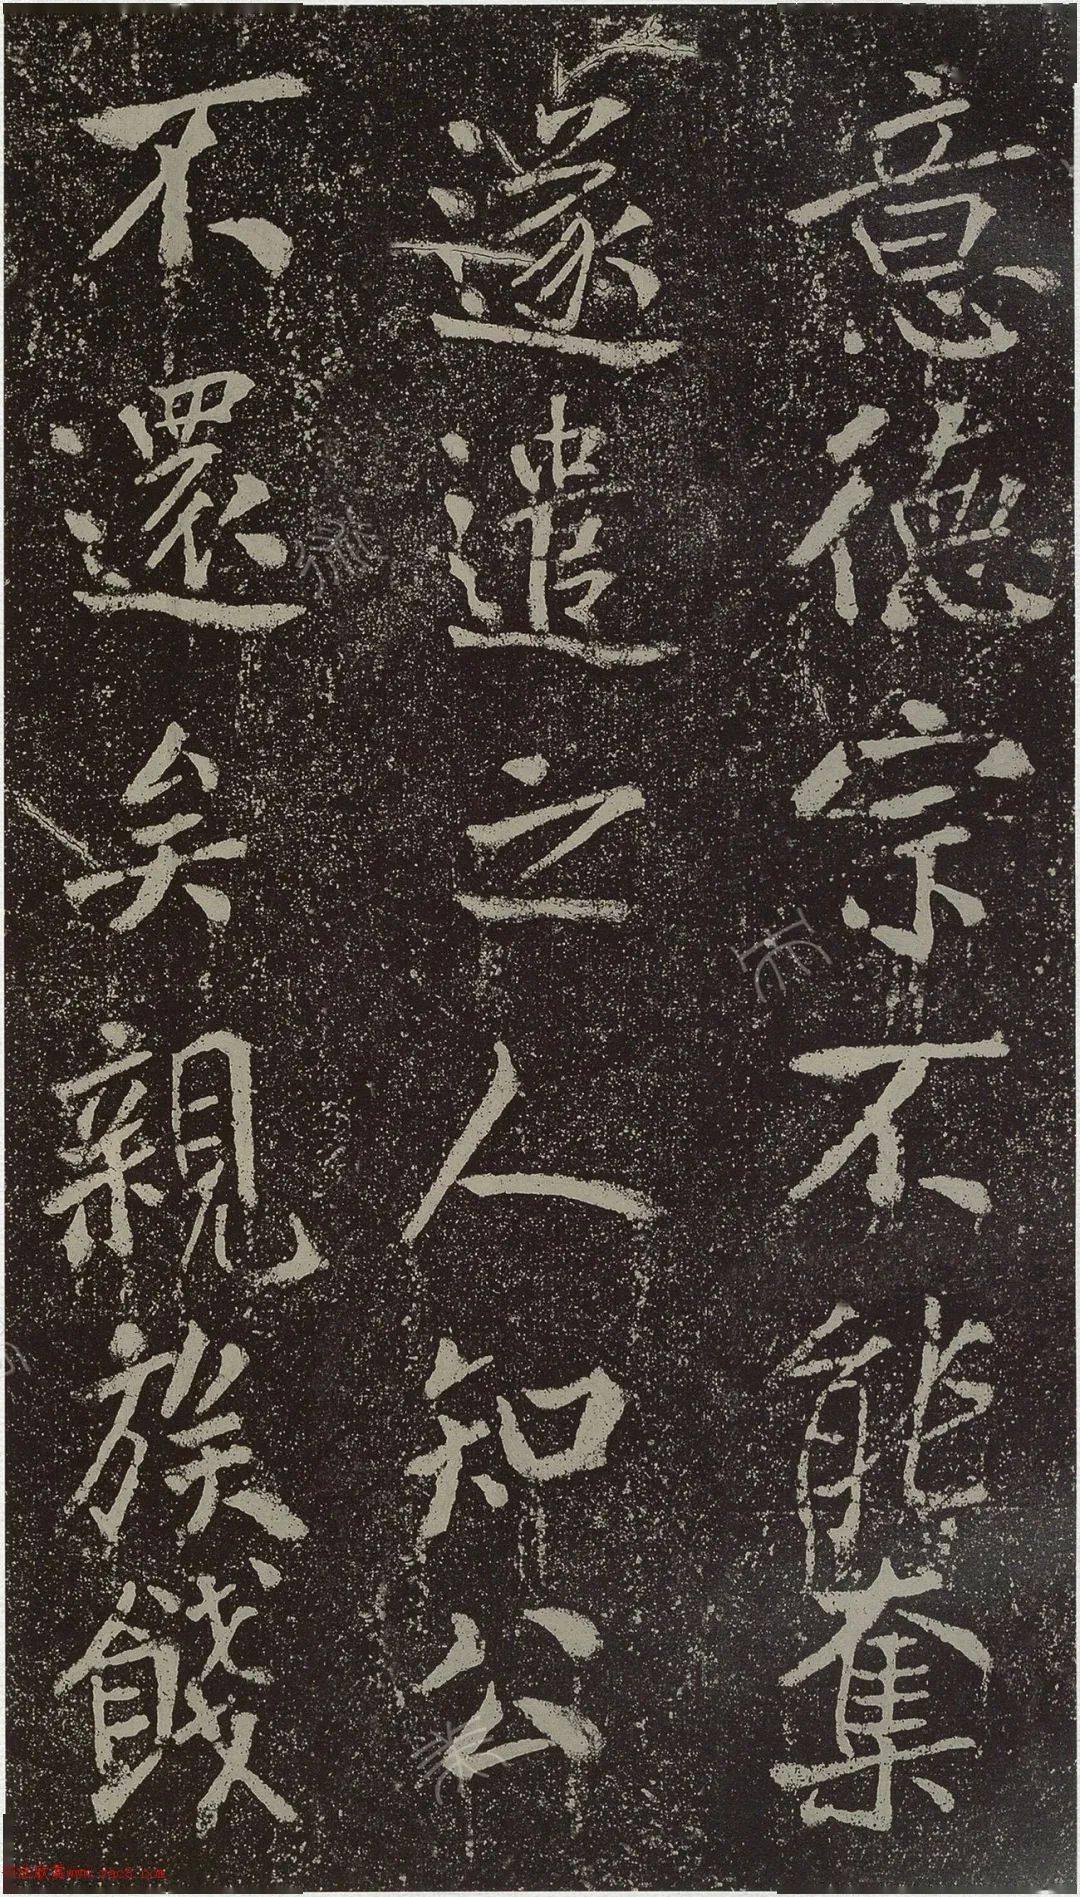 意德宗不能奪
遂遣之人知公
不還矣親族餞